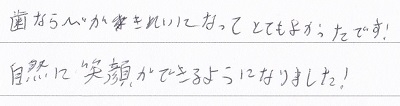 歯ならびがきれいになってとてもよかったです!
自然に笑顔ができるようになりました!